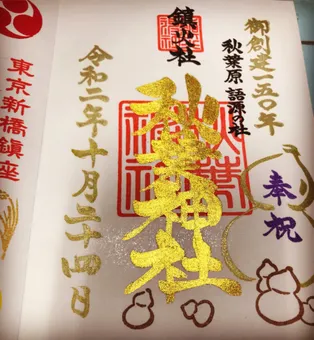 御創建一五〇年
奉祝
秋葉原 語源の社
鎮火社
秋葉神社
令和二年十月二十四日
東京新橋鎮座